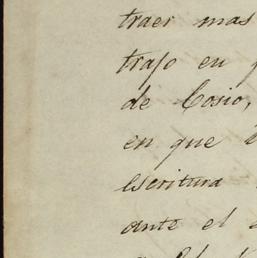 traer mas
trajo en
de Cosio,
en que
escritura
ante el